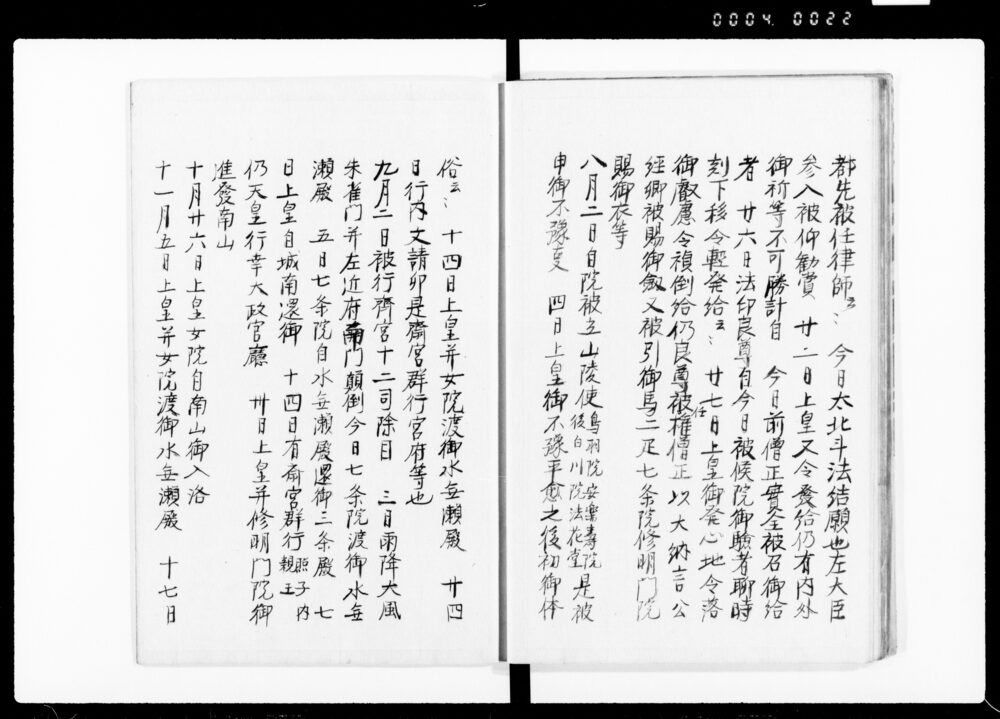 0004 0022
都先被任律師云〻 今日太北斗法結願也左大臣
参入被仰勧賞 廿二日上皇又令発給仍有内外
御祈等不可勝計自 今日前僧正実全被召御給
者 廿六日法印良尊自今日被候院御験者聊時
刻下移令軽発給云〻 廿七日上皇御発心地令落
御叡慮令禎倒給仍良尊被任権僧正以大納言公
経卿被賜御劔又被引御馬二疋七条院修明門院
賜御衣等
八月二日自院被立山陵使鳥羽院安楽寿院後白川院法花堂是被
申御不豫変 四日上皇御不豫平愈之後初御体
俗云〻 十四日上皇并女院渡御水無瀬殿 廿四
日行内文請卯是斎宮群行官府等也
九月二日被行斉宮十二司除目 三日雨降大風
朱雀門并左近府南門顛倒今日七条院渡御水無
瀬殿 五日七条院自水無瀬殿還御三条殿 七
日上皇自城南還御 十四日有斎宮群行熙子内親王
仍天皇行幸大政官廰 卅日上皇并修明門院御
進發南山
十月廿六日上皇女院自南山御入洛
十一月五日上皇并女院渡御水無瀬殿 十七日